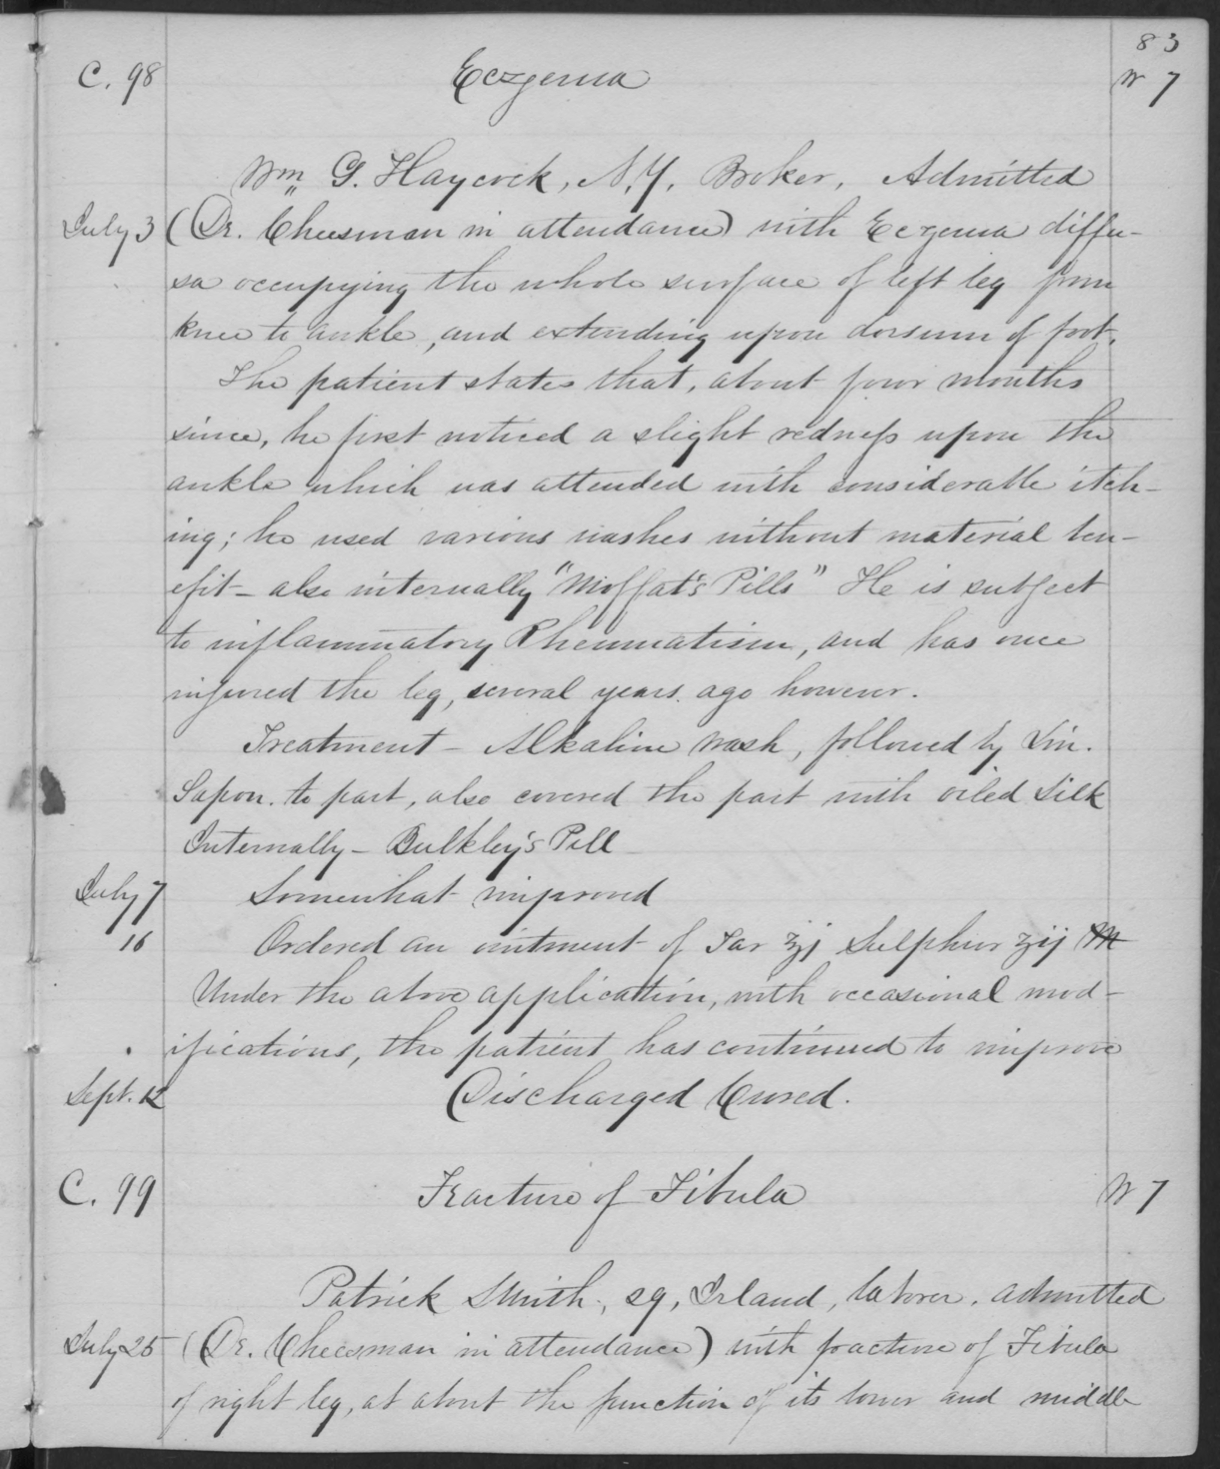 83
C. 98 Eczema W 7
Wm G. Haycock, N.Y. Broker, Admitted
July 3 (Dr. Cheesman in attendance) with Eczema diffu-
sa occupying the whole surface of left leg from
knee to ankle, and extending upon dorsum of foot.
The patient states that, about four months
since, he first noticed a slight redness upon the
ankle which was attended with considerable itch-
ing; he used various washes without material ben-
efit - also internally "Moffat's Pills" He is subject
to inflammatory Rheumatism, and has once
injured the leg, several years ago however.
Treatment - Alkaline wash, followed by Lin.
Sapon. to part, also covered the part with oiled Silk
Internally - Bulkley's Pill
July 7 Somewhat improved
16 Ordered an ointment of Tar ʒj Sulphur ʒij M
Under the above application, with occasional mod-
ifications, the patient has continued to improve
Sept. 12 Discharged Cured.
C. 99 Fracture of Fibula W 7
Patrick Smith, Irland, laborer. admitted
July 25 (Dr. Cheesman in attendance) with fracture of Fibula
of right leg, at about the junction of its lower and middle